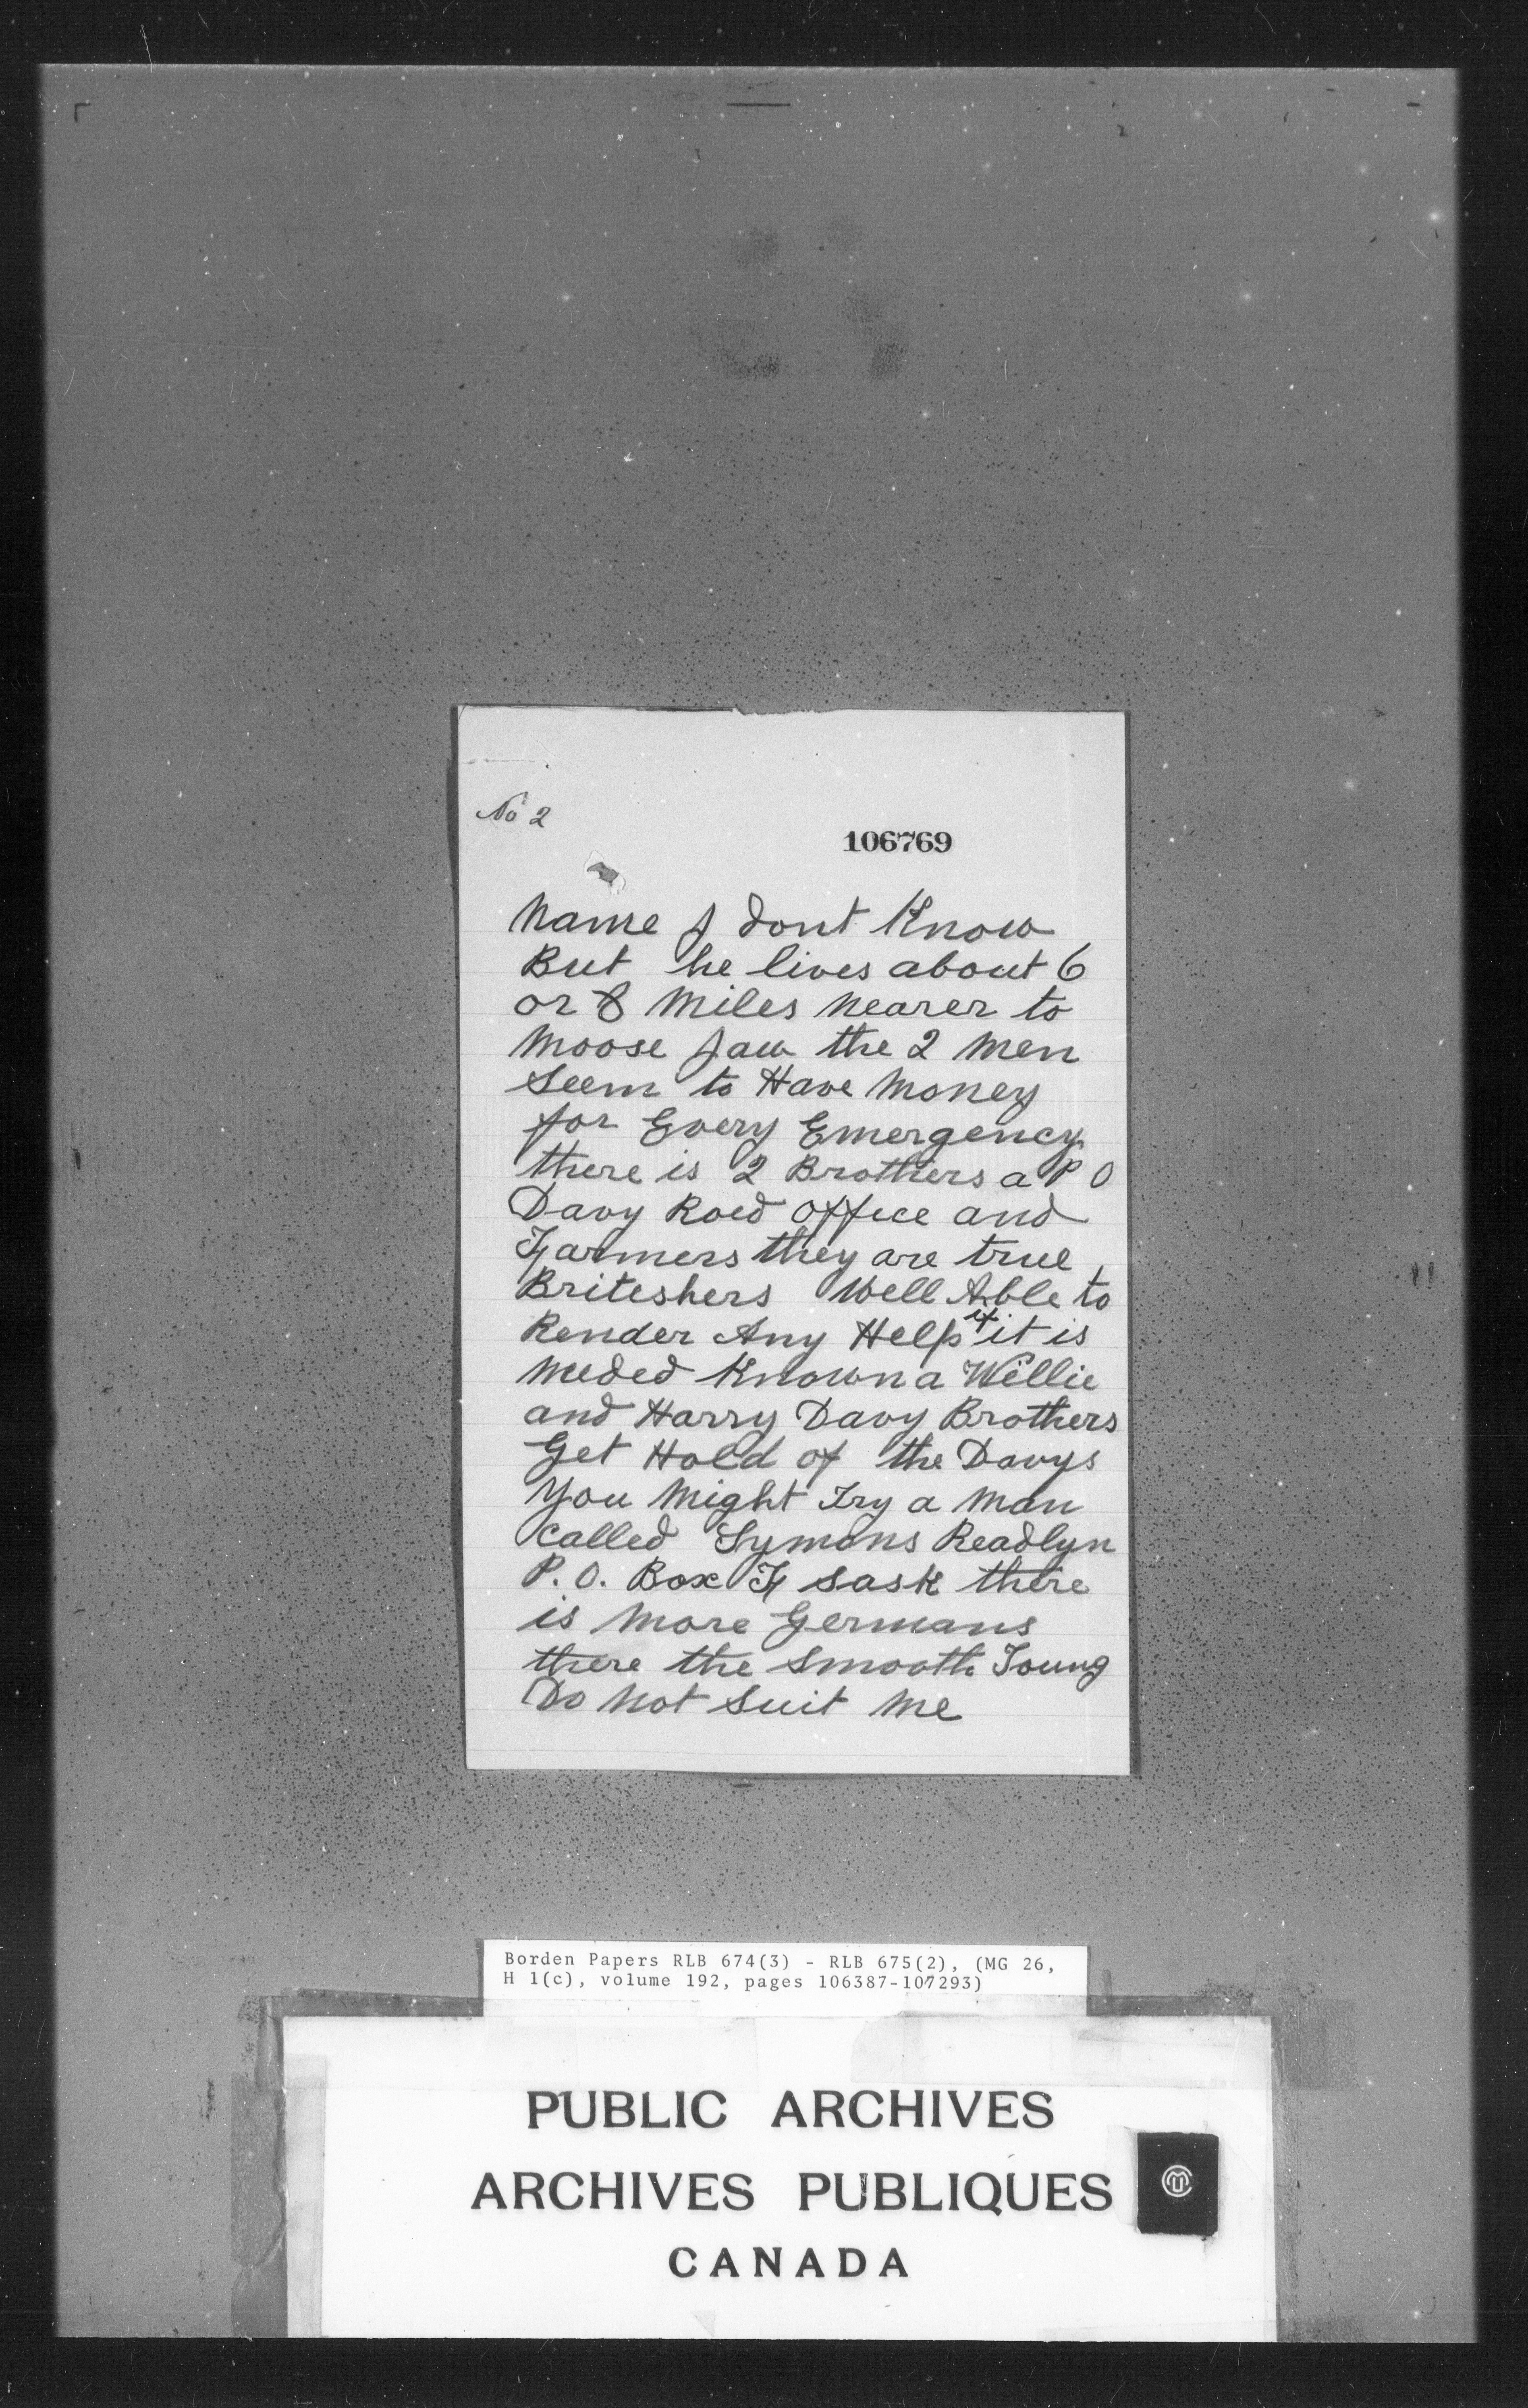 No 2
106769
Name I dont Know
But he lives about 6
or 8 Miles Nearer to
Moose Jaw the 2 Men
Seem to Have Money
for Every Emergency
there is 2 Brothers a P O
Davy Roed office and
Farmers they are true
Briteshers Well Able to
Render Any Help if it is
Needed Known a Willie
and Harry Davy Brothers
Get Hold of the Davys
You Might Try a Man
Called Symons Readlyn
P. O. Box F Sask there
is More Germans
there the Smooth Toung
Do Not Suit Me
Borden Papers RLB 674(3) - RLB 675(2), (MG 26,
H 1(c), volume 192, pages 106387-107293)
PUBLIC ARCHIVES
ARCHIVES PUBLIQUES
CANADA